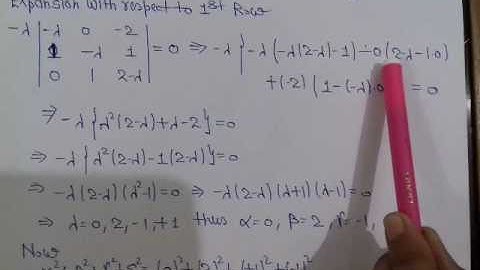 Expansion with respect to 1st Row
-λ | -λ 0 -2 | 1 -λ 1 | 0 1 2-λ | = 0 ⇒ -λ { -λ(-λ(2-λ)-1) -0(2-λ-1·0)
+(-2)(1-(-λ)·0 = 0
⇒ -λ{λ²(2-λ)+λ-2}=0
⇒ -λ{λ²(2-λ)-1(2-λ)}=0
⇒ -λ(2-λ)(λ²-1)=0 ⇒ -λ(2-λ)(λ+1)(λ-1)=0
⇒ λ=0, 2, -1, +1 thus α=0, β=2, γ=-1,
Now